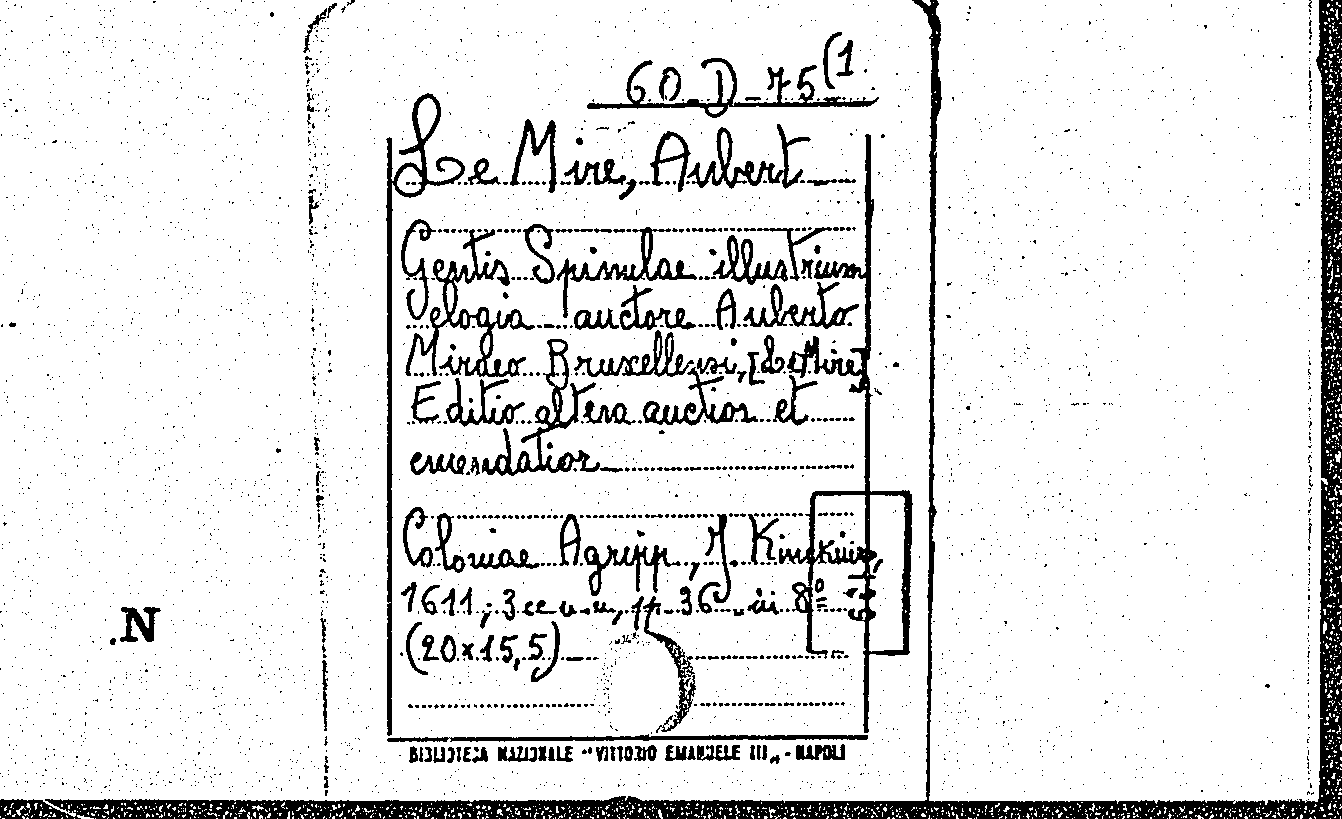 60-D-75(1
Le Mire, Aubert
Gentis Spinulae illustrium
elogia auctore Auberto
Miraeo Bruxellensi, [Le Mire]
Editio altera auctior et
emendatior
Coloniae Agripp., J. Kinckius,
1611; 3 cc n.n., pp. 36 in 8º
(20x15,5)
.N
BIBLIOTECA NAZIONALE "VITTORIO EMANUELE III„ - NAPOLI